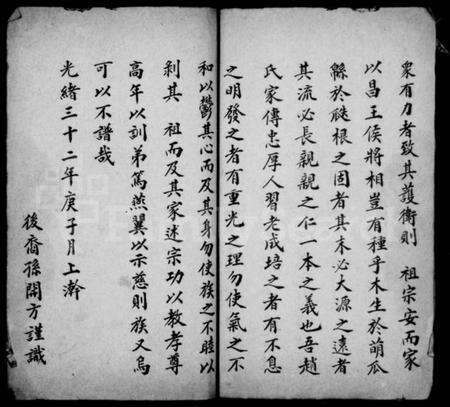 衆有力者致其護衛則　祖宗安而家
以昌王侯將相豈有種乎木生於萌瓜
緜於瓞根之固者其末必大源之遠者
其流必長親親之仁一本之義也吾趙
氏家傳忠厚人習老成培之者有不息
之明發之者有重光之理勿使氣之不
和以鬱其心而及其身勿使族之不睦以
利其　祖而及其家述宗功以教孝尊
高年以訓弟篤燕翼以示慈則族又烏
可以不譜哉
光緒三十二年庚子月上澣
後裔孫開方謹識